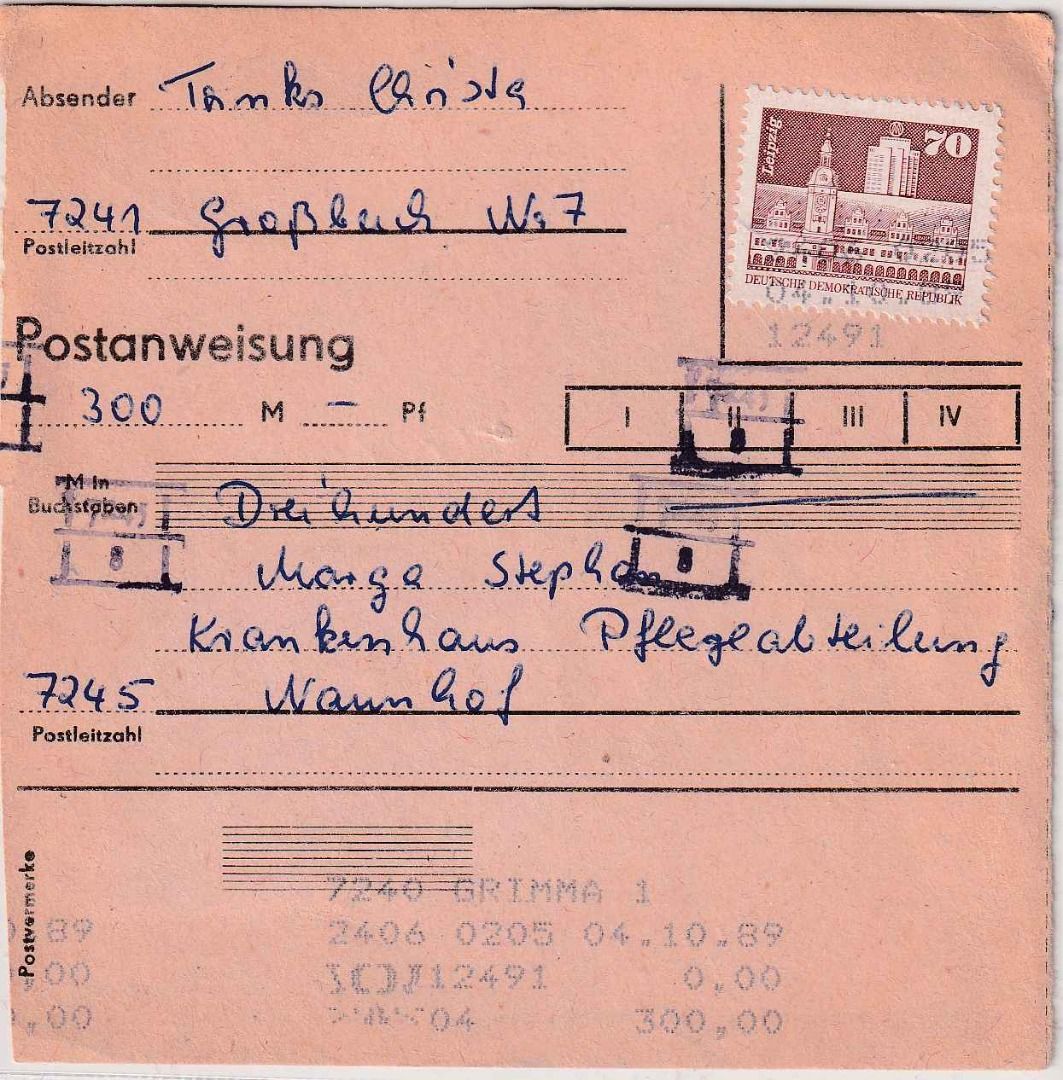 Absender Tanks Christa
Leipzig
70
DEUTSCHE DEMOKRATISCHE REPUBLIK
7241 Großbuch Nr 7
Postleitzahl
04.10.89
12491
Postanweisung
300 M – Pf
I II III IV
M in
Buchstaben Dreihundert
8
8
8
Marga Stephan
Krankenhaus Pflegeabteilung
7245 Naunhof
Postleitzahl
Postvermerke
7240 GRIMMA 1
89 2406 0205 04.10.89
,00 12491 0,00
,00 04 300,00